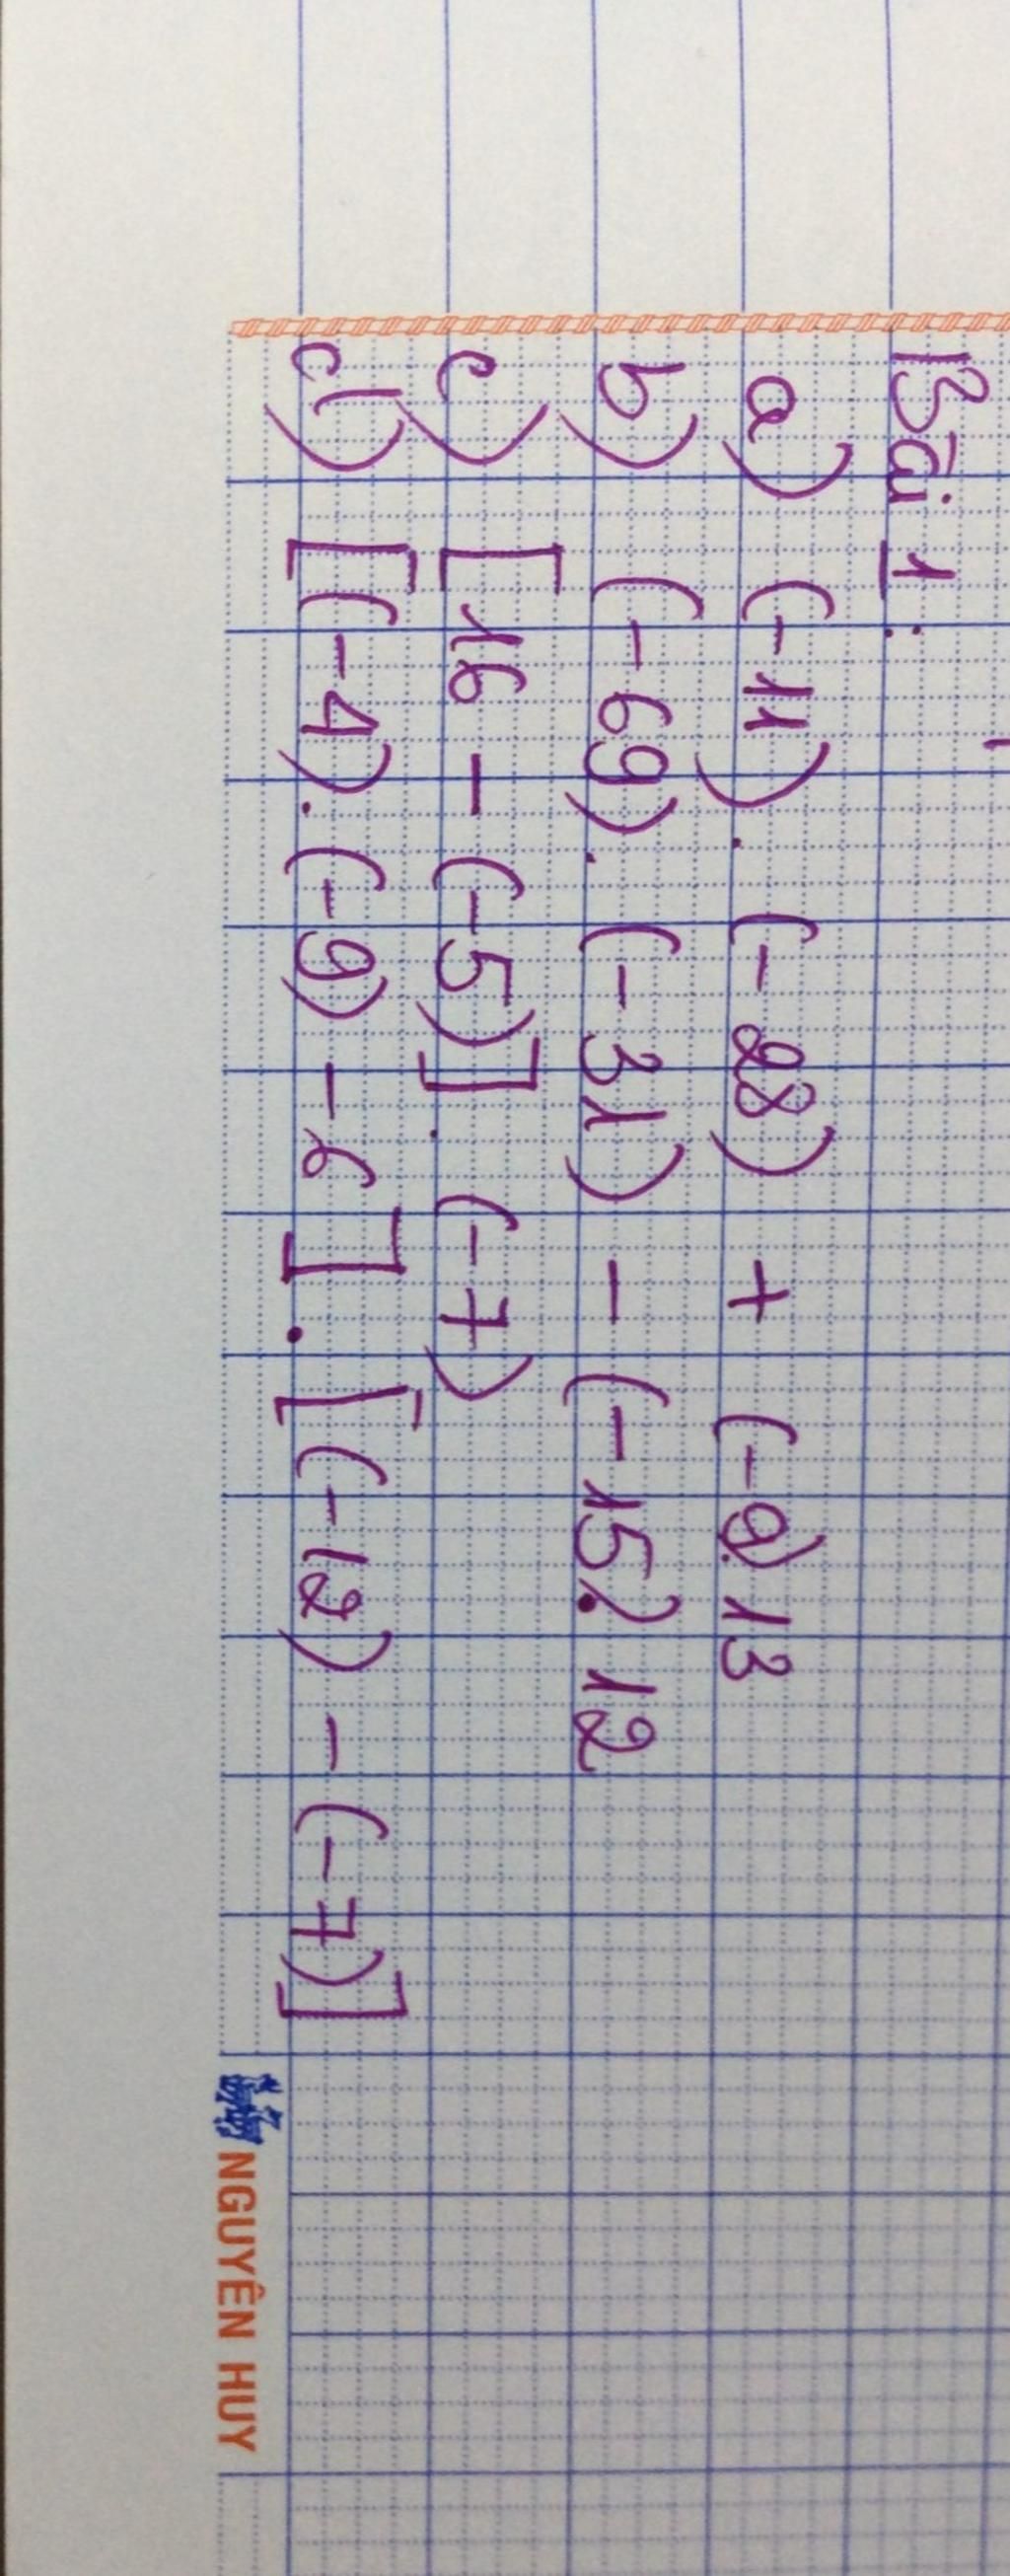 Bài 1:
a) (-11). (-28) + (-9).13
b) (-69). (-31) - (-15). 12
c) [16 - (-5)]. (-7)
d) [(-4). (-9) - 6]. [(-12) - (-7)]
NGUYÊN HUY